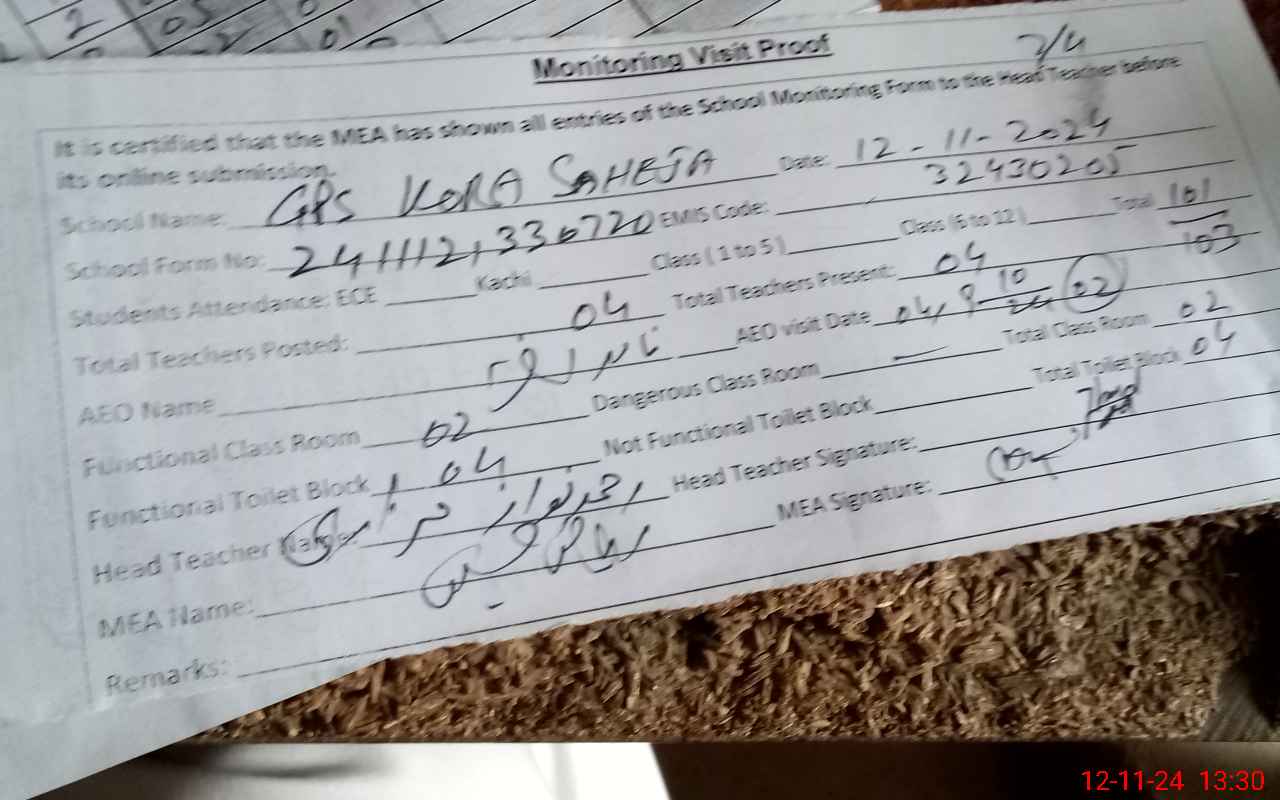 2 05
01
Monitoring Visit Proof
It is certified that the MEA has shown all entries of the School Monitoring Form to the Head Teacher before
its online submission.
School Name: GPS KORA SAHEJA Date: 12-11-2024
School Form No: EMIS Code: 32430205
Students Attendance: ECE Kachi Class (1 to 5) Class (6 to 12) Total 101/103
Total Teachers Posted: 04 Total Teachers Present: 04
AEO Name AEO visit Date 04, 9 10 02
Functional Class Room 02 Dangerous Class Room — Total Class Room 02
Functional Toilet Block 04 Not Functional Toilet Block Total Toilet Block 04
Head Teacher Name: Head Teacher Signature:
MEA Name: MEA Signature:
Remarks:
12-11-24 13:30